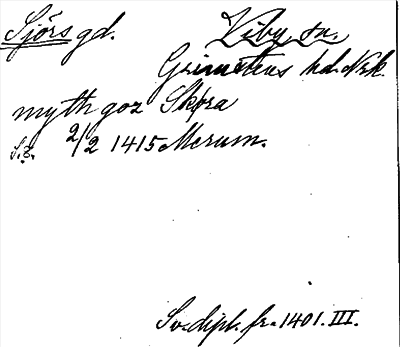 Sjörs gd. Viby sn.
Grimstens hd. Nrk.
myth goz Skøra
S.d. 2/2 1415 Merum.
Sv. dipl. fr. 1401. III.